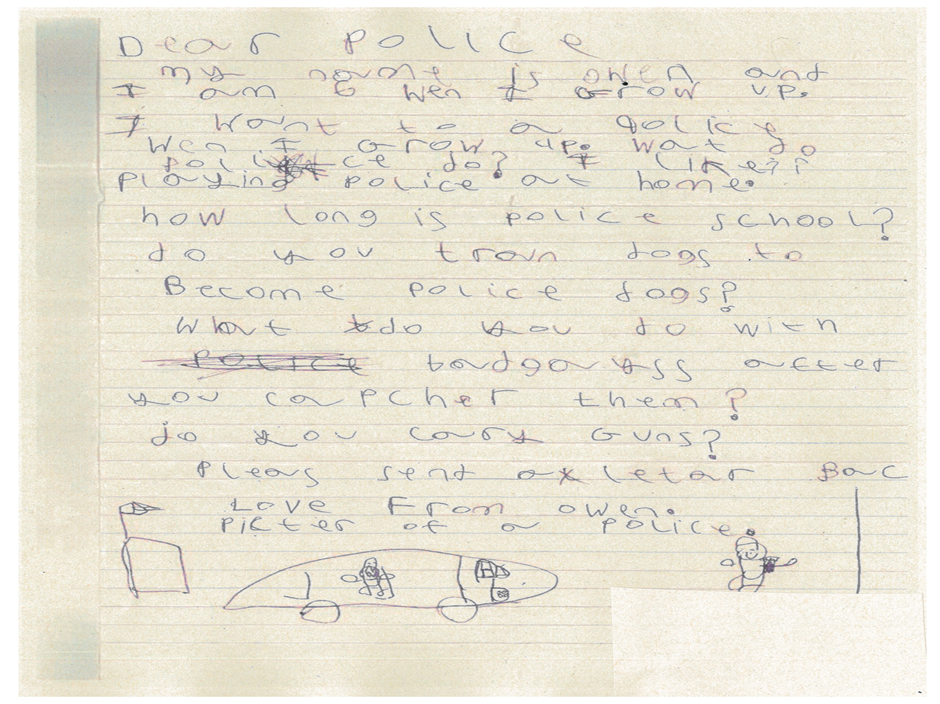 Dear Police
my name is owen and
I am 6 wen I Grow up.
I want to a police
Wen I Grow up. Wat do
police do? I like??
Playing police at home.
how long is police school?
do you train dogs to
Become police dogs?
What do you do with
badgayss after
you capcher them?
do you cary Guns?
Pleas sent a letar Bac
Love From owen.
Picter of a police.